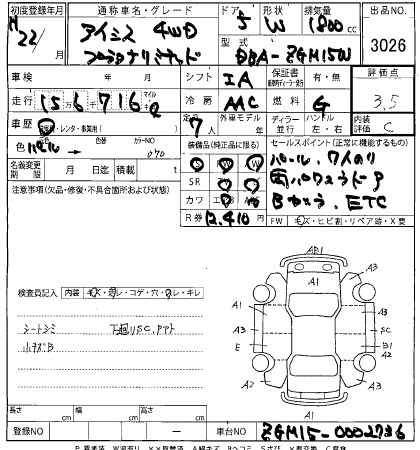 初度登録年月 通称車名・グレード ドア 形状 排気量 出品No.
H22/ 月 アイシス 4WD 5 W 1800cc 3026
プラタナリミテッド 型式 DBA-ZGM15W
車検 年 月 シフト IA 保証書 有・無 評価点
走行 156,716 冷房 AAC 燃料 G 3.5
車歴 レンタ・事業用( ) 定員 7人 外車モデル 年 ディーラー 並行 ハンドル 左・右 内装評価 C
色 パール カラーNo 070 装備品(純正品に限る) セールスポイント(正常に機能するもの)
名義変更期限 月 日迄 積載 t パール、7人のり
注意事項(欠品・修復・不具合箇所および状態) SR パワスラドア
カワ Bカメラ、ETC
R券 12,410 FW キズ・ヒビ割・リペア跡・X要
AD1
A3
A1 A3
検査員記入 内装
シートシミ 下廻りSC,アト A3 SC
小キズB E B1
A2 A2
A3
A1
長さ cm 幅 cm 高さ cm
登録NO 車台No ZGM15-0002736